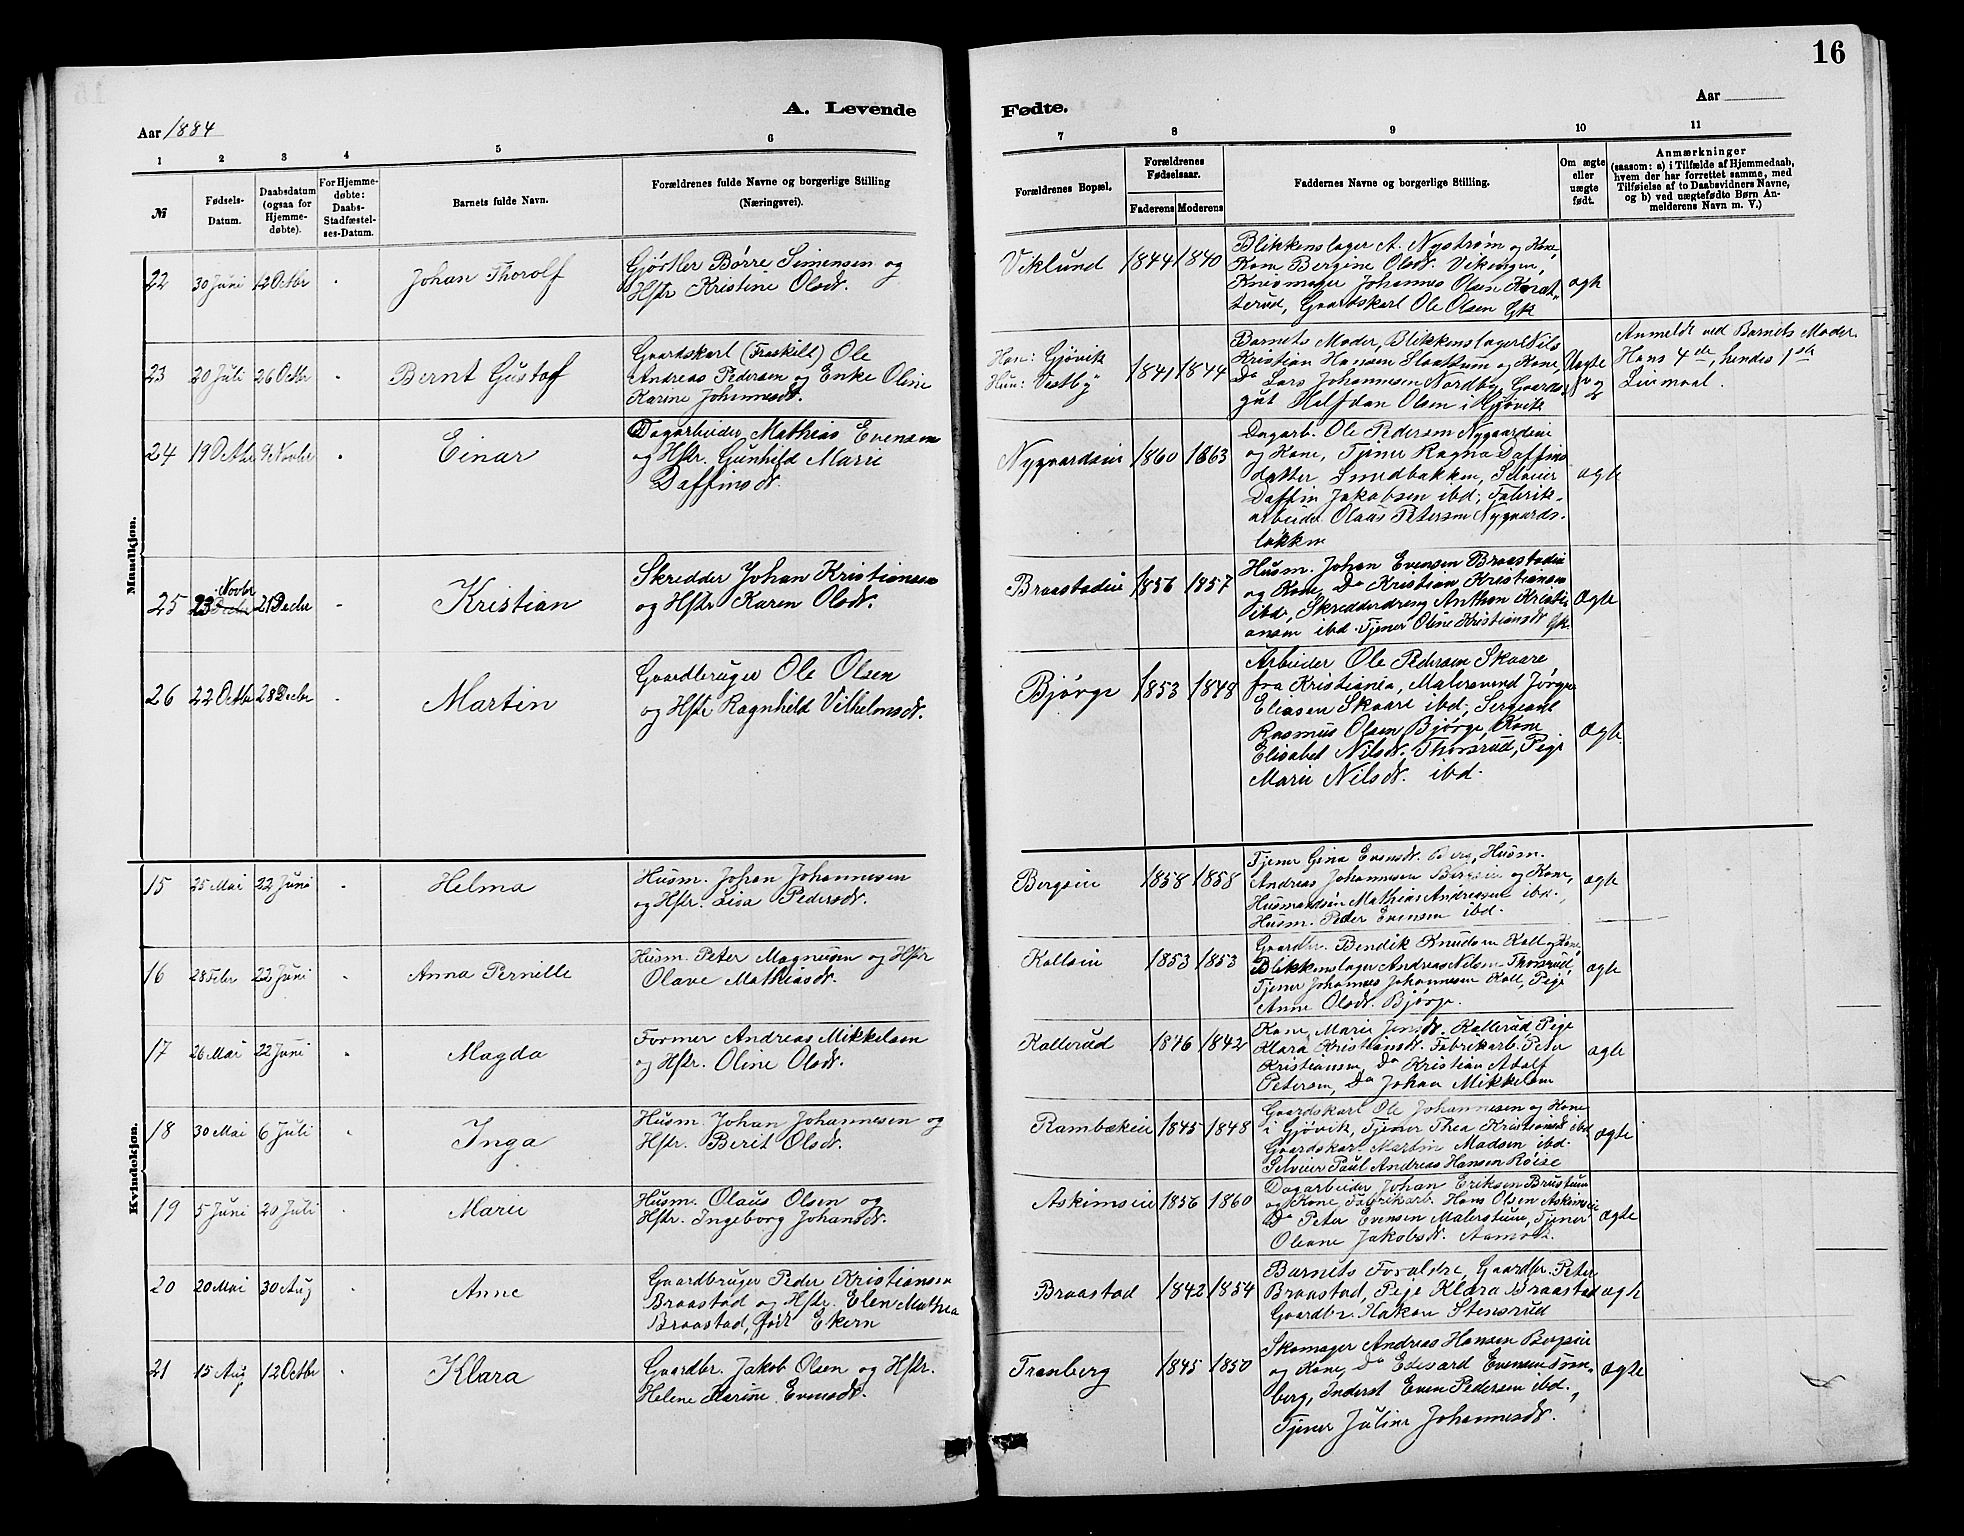 16
A. Levende
Fødte.
Aar 1884
Aar
1 2 3 4 5 6 7 8 9 10 11
№
Fødsels-
Datum.
Daabsdatum
(ogsaa for
Hjemme-
døbte).
For Hjemme-
døbte:
Daabs-
Stadfæstel-
ses-Datum.
Barnets fulde Navn.
Forældrenes fulde Navne og borgerlige Stilling
(Næringsvei).
Forældrenes Bopæl.
Forældrenes
Fødselsaar.
Faderens Moderens
Faddernes Navne og borgerlige Stilling.
Om ægte
eller
uægte
født.
Anmærkninger
(saasom: a) i Tilfælde af Hjemmedaab,
hvem der har forrettet samme, med
Tilføielse af to Daabsvidners Navne,
og b) ved uægtefødte Børn An-
melderens Navn m. V.)
Mandkjøn.
22 30 Juni 12 Octbr Johan Thorolf
Gjørtler Børre Simensen og
Hstr Kristine Olsdt.
Viklund 1844 1840
Blikkenslager A. Nystrøm og Kone,
Kone Bergine Olsdt. Vikengen,
Johannes Olsen
Gaardskarl Ole Olsen Gk
ægte
23 20 Juli 26 Octbr Bernt Gustaf
Gaardskarl (Fraskilt) Ole
Andreas Pedersen og Enke Oline
Karine Johannesdt.
Han: Gjøvik
Hun: Vestby
1841 1844
Barnets Moder, Blikkenslager Nils
Kristian Hansen Slaattum og Kone,
Do Lars Johannesen Nordby, Gaards-
gut Halfdan Olsen i Gjøvik
Uægte
Anmeldt ved Barnets Moder.
Hans 4de, hendes 1ste
Leiermaal.
24 19 Octbr 9 Novbr Einar
Dagarbeider Mathias Evensen
og Hstr. Gunhild Marie
Daffinsdt.
Nygaardseie 1860 1863
Dagarb. Ole Pedersen Nygaardseie
og Kone, Tjener Ragna Daffins
datter Smedbakken, Selveier
Daffin Jakobsen ibd; Fabrik-
arbeider Olaus Petersen Nygaards-
løkken
ægte
25 23 Novbr Decbr 21 Decbr Kristian
Skredder Johan Kristiansen
og Hstr Karen Olsdt.
Braastadeie 1856 1857
Husm. Johan Evensen Braastadeie
og Kone, Do Kristian Kristiansen
ibd, Skredderdreng Anthon Kristi-
ansen ibd. Tjener Oline Kristiansdt Gk.
Ægte
26 22 Octbr 28 Decbr Martin
Gaardbruger Ole Olsen
og Hstr Ragnhild Vilhelmsdt.
Bjørge 1853 1848
Arbeider Ole Pedersen Skaare
fra Kristiania, Malersvend Jørgen
Eliasen Skaare ibd; Sergeant
Rasmus Olsen Bjørge, Kone
Elisabet Nilsdt. Thorsrud, Pige
Marie Nilsdt. ibd.
Ægte
Kvindekjøn.
15 25 Mai 22 Juni Helma
Husm. Johan Johannesen
og Hstr. Lisa Pedersdt.
Bergseie 1858 1858
Tjener Gina Evensdt. Berg, Husm.
Andreas Johannesen Bergseie og Kone,
Husmandsøn Mathias Andreasen ibd.,
Husm. Peder Evensen ibd.
ægte
16 28 Febr 22 Juni Anna Pernille
Husm. Peter Magnusen og Hstr
Olave Mathiasdt.
Kollseie 1853 1853
Gaardbr. Bendik Knudsen Koll og Kone,
Blikkenslager Andreas Nilsen Thorsrud,
Tjener Johannes Johannesen Koll, Pige
Anne Olsdt. Bjørge.
ægte
17 26 Mai 22 Juni Magda
Former Andreas Mikkelsen
og Hstr. Oline Olsdt.
Kallerud 1846 1842
Kone, Marie Jensdt. Kallerud Pige
Klara Kristiansdt. Fabrikarb. Peter
Kristiansen, Do Kristian Adolf
Petersen, Do Johan Mikkelsen
ægte
18 30 Mai 6 Juli Inga
Husm. Johan Johannesen og
Hstr. Berit Olsdt.
Rambækeie 1845 1848
Gaardskarl Ole Johannesen og Kone
i Gjøvik, Tjener Thea Kristiansdt ibd,
Gaardskarl Martin Madsen ibd.
Selveier Paul Andreas Hansen Røise
Ægte
19 5 Juni 20 Juli Marie
Husm. Olaus Olsen og
Hstr. Ingeborg Johansdt.
Askimseie 1856 1860
Dagarbeider Johan Eriksen Brustuen
og Kone, Fabrikarb. Hans Olsen Askimseie
Do Peter Evensen Malerstuen, Tjener
Oleane Jakobsdt. Aamodt.
Ægte
20 20 Mai 30 Aug Anne
Gaardbruger Peder Kristiansen
Braastad og Hstr. Elen Mathea
Braastad, født Ekern
Braastad 1842 1854
Barnets Forældre, Gaardbr. Peter
Braastad, Pige Klara Braastad
Gaardbr. Hakon Stensrud
ægte
21 15 Aug 12 Octbr Klara
Gaardbr. Jakob Olsen og Hstr.
Helene Karine Evensdt.
Tranberg 1845 1850
Skomager Andreas Hansen Bergseie
og Kone, Do Edvard Evensen Tran-
berg, Inderst Even Pedersen ibd.,
Tjener Juline Johannesdt.
Ægte